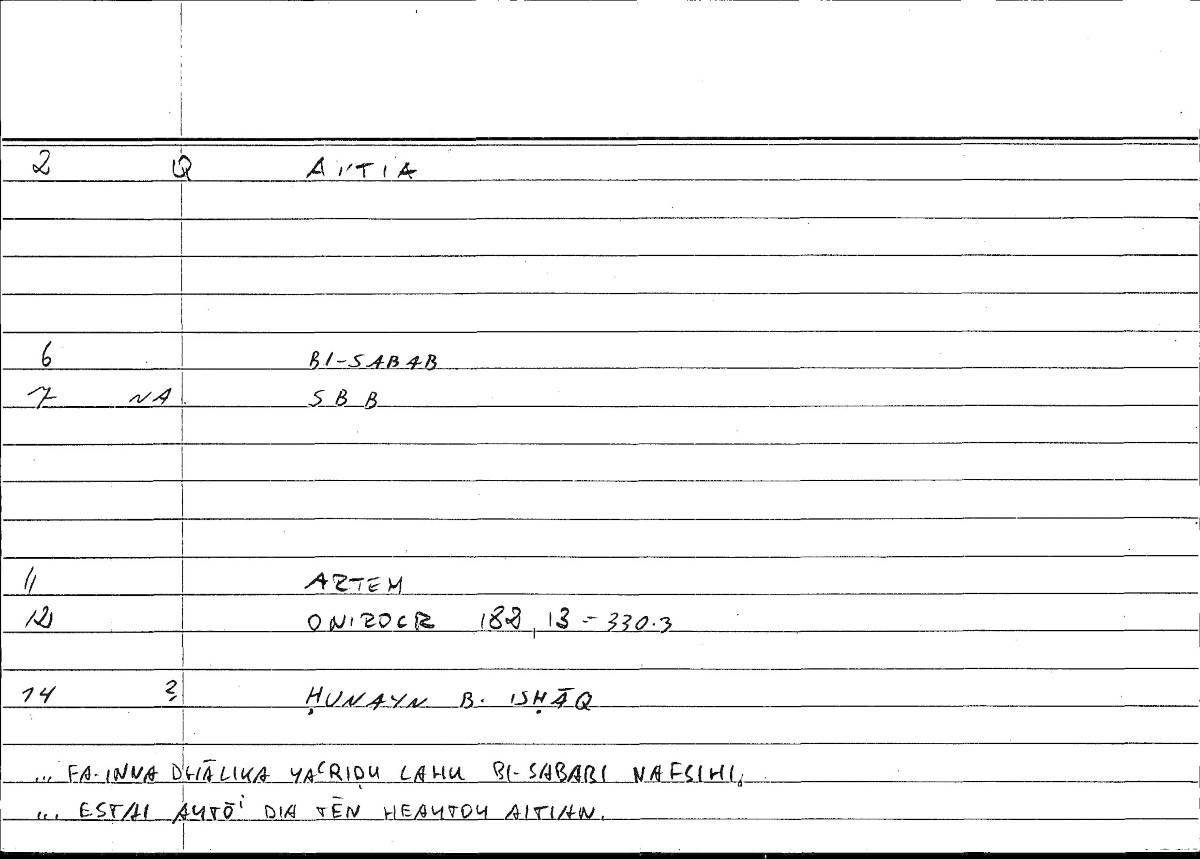 2 Q AI'TIA
6 BI-SABAB
7 NA SBB
11 ARTEM
12 ONIROCR 182,13 = 330.3
14 ? ḤUNAYN B. ISḤĀQ
... FA-INNA DHĀLIKA YAʿRIḌU LAHU BI-SABABI NAFSIHI,
... ESTAI AUTŌⁱ DIA TĒN HEAUTOU AITIAN.